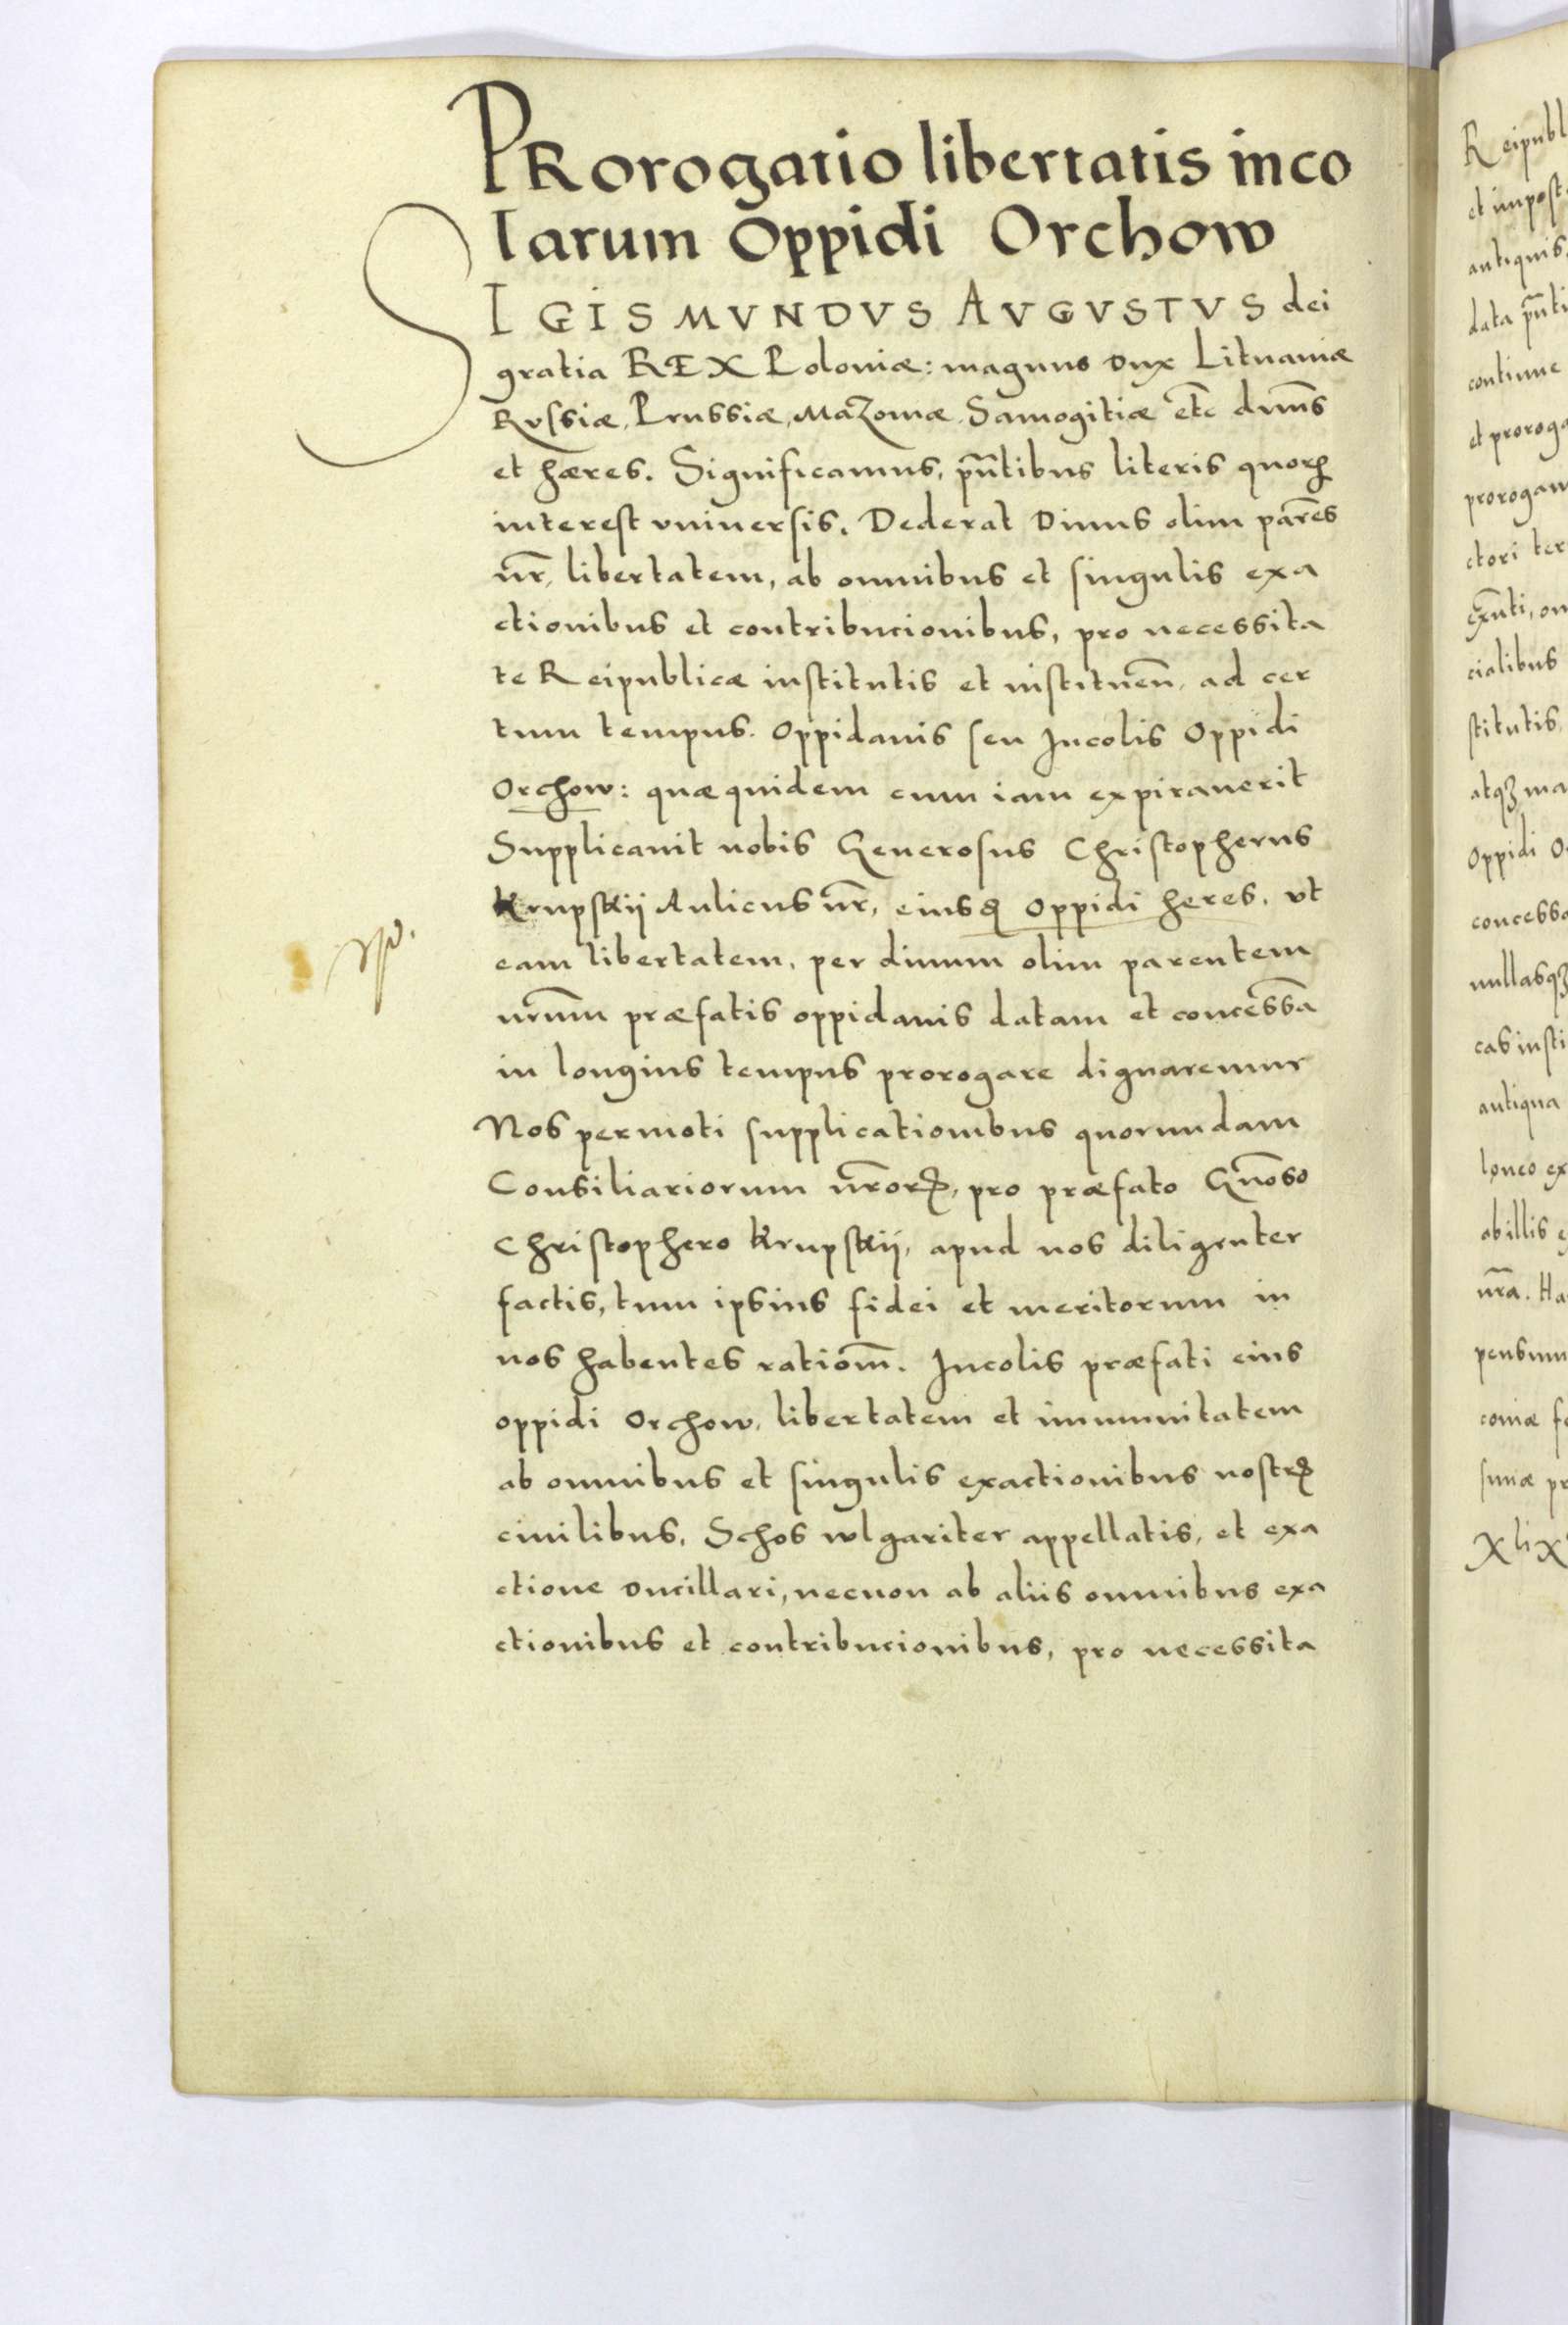 PRorogatio libertatis inco
larum Oppidi Orchow
SIGISMVNDVS AVGVSTVS dei
gratia REX Poloniæ: magnus Dux Lituaniæ
Rvssiæ, Prussiæ, Mazouiæ, Samogitiæ etc̄ dnn̄s
et hæres. Significamus, pn̄tibus literis quoꝝ
interest vniuersis. Dederat Diuus olim parēs
nr̄, libertatem, ab omnibus et singulis exa
ctionibus et contribucionibus, pro necessita
te Reipublicæ institutis et instituen̄, ad cer
tum tempus. Oppidanis seu Incolis Oppidi
Orchow: quæ quidem cum iam expirauerit
Supplicauit nobis Generosus Christopherus
Krupskij Aulicus nr̄, eiusꝗ oppidi heres, vt
eam libertatem, per diuum olim parentem
nrūm præfatis oppidanis datam et concessā
in longius tempus prorogare dignaremur
Nos permoti supplicationibus quorundam
Consiliariorum nr̄oꝝ, pro præfato Gn̄oso
Christophero Krupskij, apud nos diligenter
factis, tum ipsius fidei et meritorum in
nos habentes ratiom̄. Incolis præfati eius
oppidi Orchow, libertatem et immunitatem
ab omnibus et singulis exactionibus nostꝝ
ciuilibus, Schos wlgariter appellatis, et exa
ctione Ducillari, necnon ab aliis omnibus exa
ctionibus et contribucionibus, pro necessita
Reipubl
antiquis
data pn̄ti
et proroga
prorogam
ctori ter
cialibus
stitutis,
atqꝫ ma
Oppidi O
concessa
nullasqꝫ
cas insti
antiqua
ab illis e
nr̄a. Ha